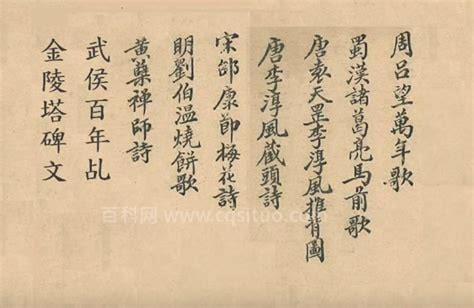 周呂望萬年歌
蜀漢諸葛亮馬前歌
唐袁天罡李淳風推背圖
唐李淳風藏頭詩
宋邵康節梅花詩
明劉伯温燒餅歌
黄蘗禅師詩
武侯百年乩
金陵塔碑文
百科网 www.cqsituo.com